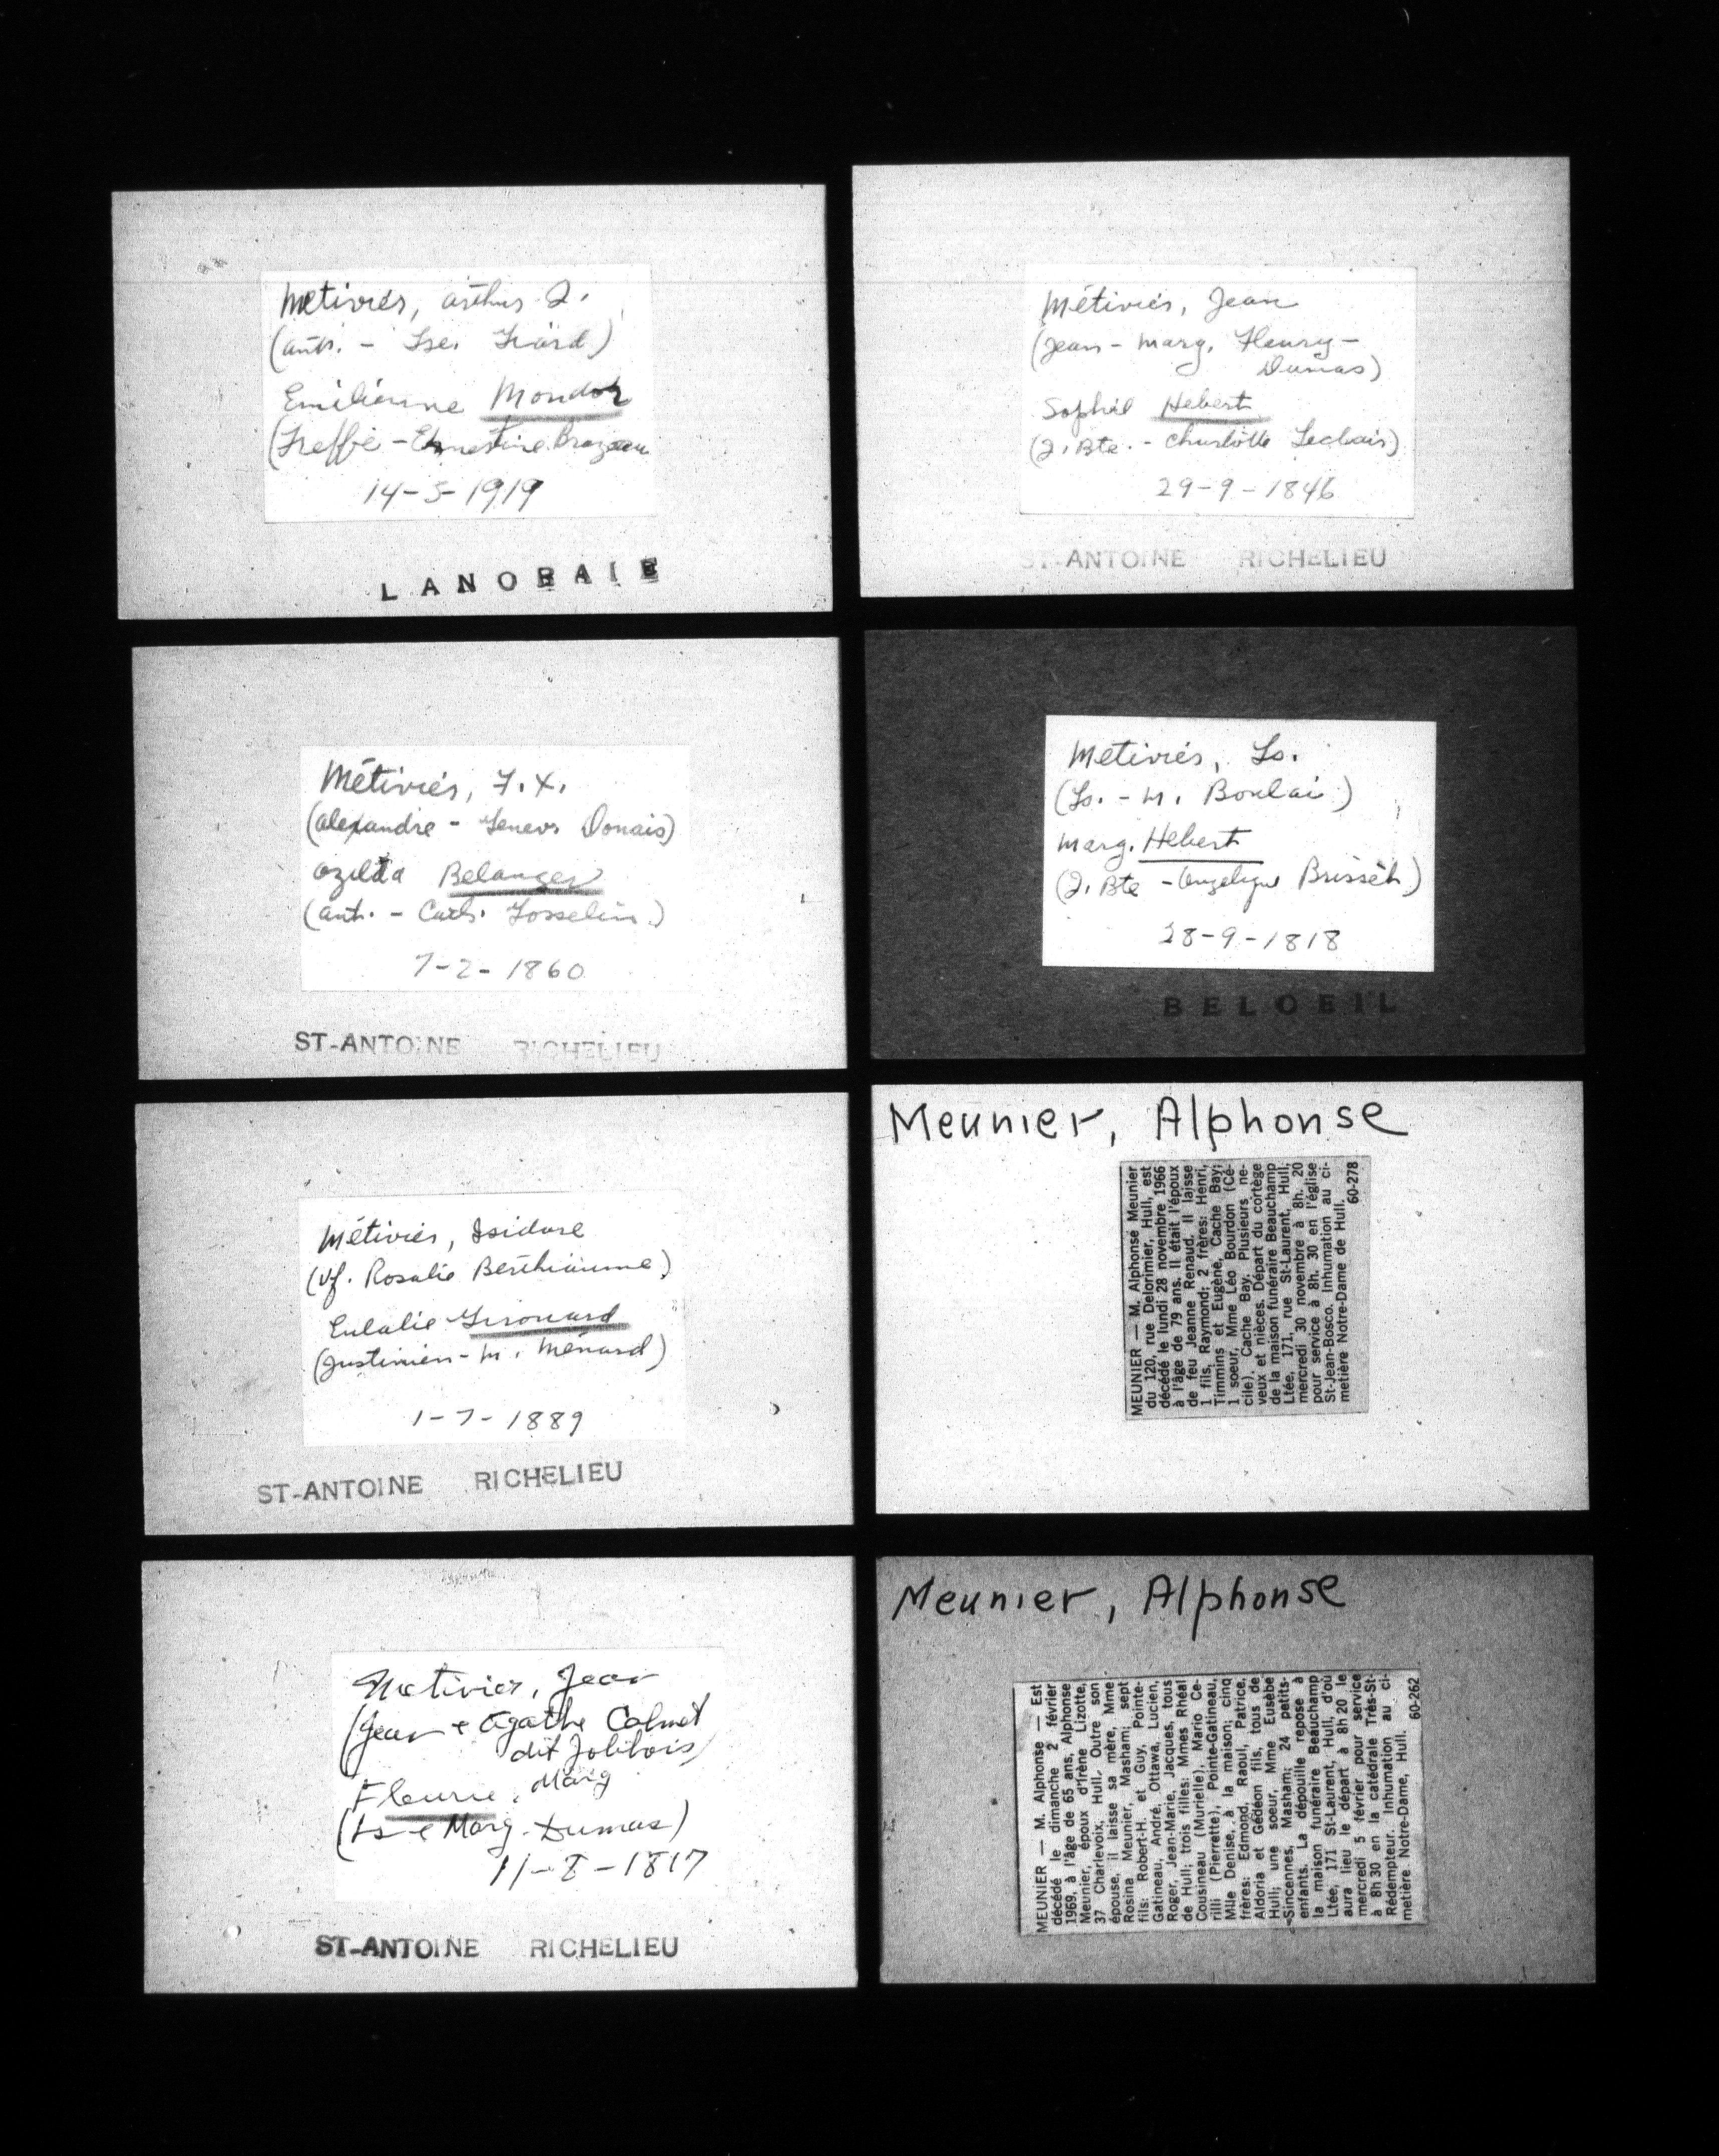 Métiviés, Arthur J.
(Ant. - Ise. Girard)
Emilienne Mondor
(Treffié - Ernestine Brazeau
14-5-1919
LANORAIE
Métiviés, F.X.
(Alexandre - Genev. Donais)
Ozilda Belanger
(Ant. - Cath. Gosselin)
7-2-1860
ST-ANTOINE RICHELIEU
Métiviés, Isidore
(Vf. Rosalie Berthiaume)
Eulalie Girouard
(Justinien - M. Menard)
1-7-1889
ST-ANTOINE RICHELIEU
Metivier, Jean
(Jean & Agathe Colmet
dit Jolibois)
Fleurie, Marg
(Ls & Marg. Dumas)
11-8-1817
ST-ANTOINE RICHELIEU
Métiviés, Jean
(Jean - Marg. Fleury-
Dumas)
Sophie Hebert
(J. Bte. - Charlotte Leclair)
29-9-1846
ST-ANTOINE RICHELIEU
Metiviés, Ls.
(Ls. - M. Boulai)
Marg. Hebert
(J. Bte - Angelique Brisset)
28-9-1818
BELOEIL
Meunier, Alphonse
MEUNIER — M. Alphonse Meunier
du 120, rue Delorimier, Hull, est
décédé le lundi 28 novembre 1966
à l'âge de 79 ans. Il était l'époux
de feu Jeanne Renaud. Il laisse
1 fils, Raymond; 2 frères: Henri,
Timmins et Eugène, Cache Bay;
1 soeur, Mme Léo Bourdon (Cé-
cile), Cache Bay. Plusieurs ne-
veux et nièces. Départ du cortège
de la maison funéraire Beauchamp
Ltée, 171, rue St-Laurent, Hull,
mercredi 30 novembre à 8h. 20
pour service à 8h. 30 en l'église
St-Jean-Bosco. Inhumation au ci-
metière Notre-Dame de Hull.
60-278
Meunier, Alphonse
MEUNIER — M. Alphonse — Est
décédé le dimanche 2 février
1969, à l'âge de 65 ans, Alphonse
Meunier, époux d'Irène Lizotte,
37 Charlevoix, Hull. Outre son
épouse, il laisse sa mère, Mme
Rosina Meunier, Masham; sept
fils: Robert-H. et Guy, Pointe-
Gatineau, André, Ottawa, Lucien,
Roger, Jean-Marie, Jacques, tous
de Hull; trois filles: Mmes Rhéal
Cousineau (Murielle), Mario Ce-
rilli (Pierrette), Pointe-Gatineau,
Mlle Denise, à la maison; cinq
frères: Edmond, Raoul, Patrice,
Aldoria et Gédéon fils, tous de
Hull; une soeur, Mme Eusèbe
Sincennes, Masham; 24 petits-
enfants. La dépouille repose à
la maison funéraire Beauchamp
Ltée, 171 St-Laurent, Hull, d'où
aura lieu le départ à 8h 20 le
mercredi 5 février pour service
à 8h 30 en la catédrale Très-St-
Rédempteur. Inhumation au ci-
metière Notre-Dame, Hull.
60-262